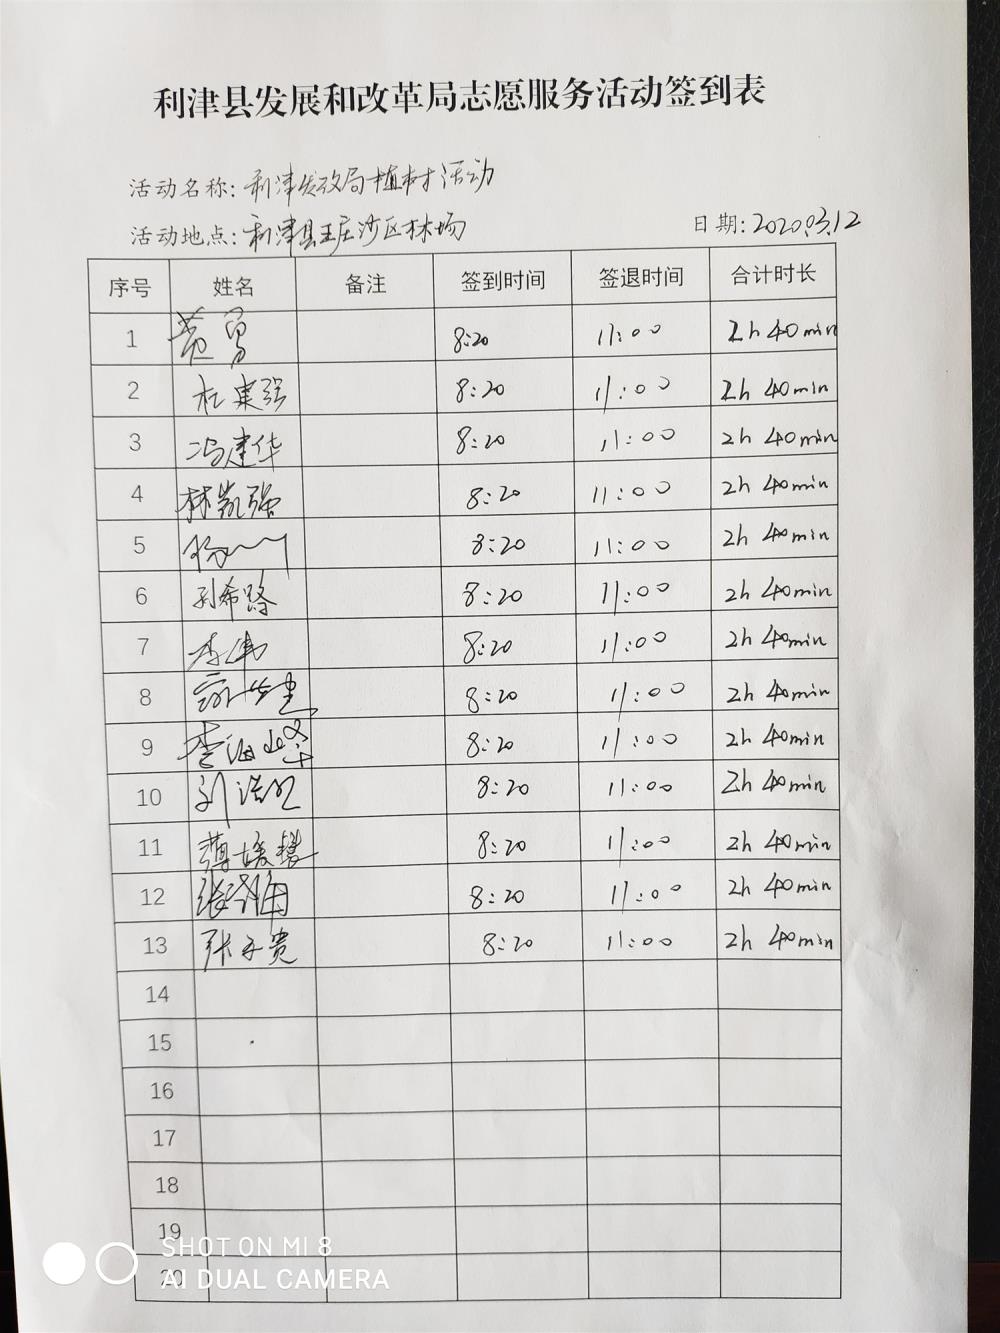 利津县发展和改革局志愿服务活动签到表
活动名称: 利津发改局植树活动
活动地点: 利津县王庄沙区林场 日期: 2020.3.12
序号 姓名 备注 签到时间 签退时间 合计时长
1 黄勇 8:20 11:00 2h 40min
2 杜建强 8:20 11:00 2h 40min
3 冯建华 8:20 11:00 2h 40min
4 林凯强 8:20 11:00 2h 40min
5 8:20 11:00 2h 40min
6 孙希路 8:20 11:00 2h 40min
7 李伟 8:20 11:00 2h 40min
8 8:20 11:00 2h 40min
9 李海峰 8:20 11:00 2h 40min
10 8:20 11:00 2h 40min
11 8:20 11:00 2h 40min
12 8:20 11:00 2h 40min
13 张子贵 8:20 11:00 2h 40min
14
15
16
17
18
19
20
SHOT ON MI 8
AI DUAL CAMERA